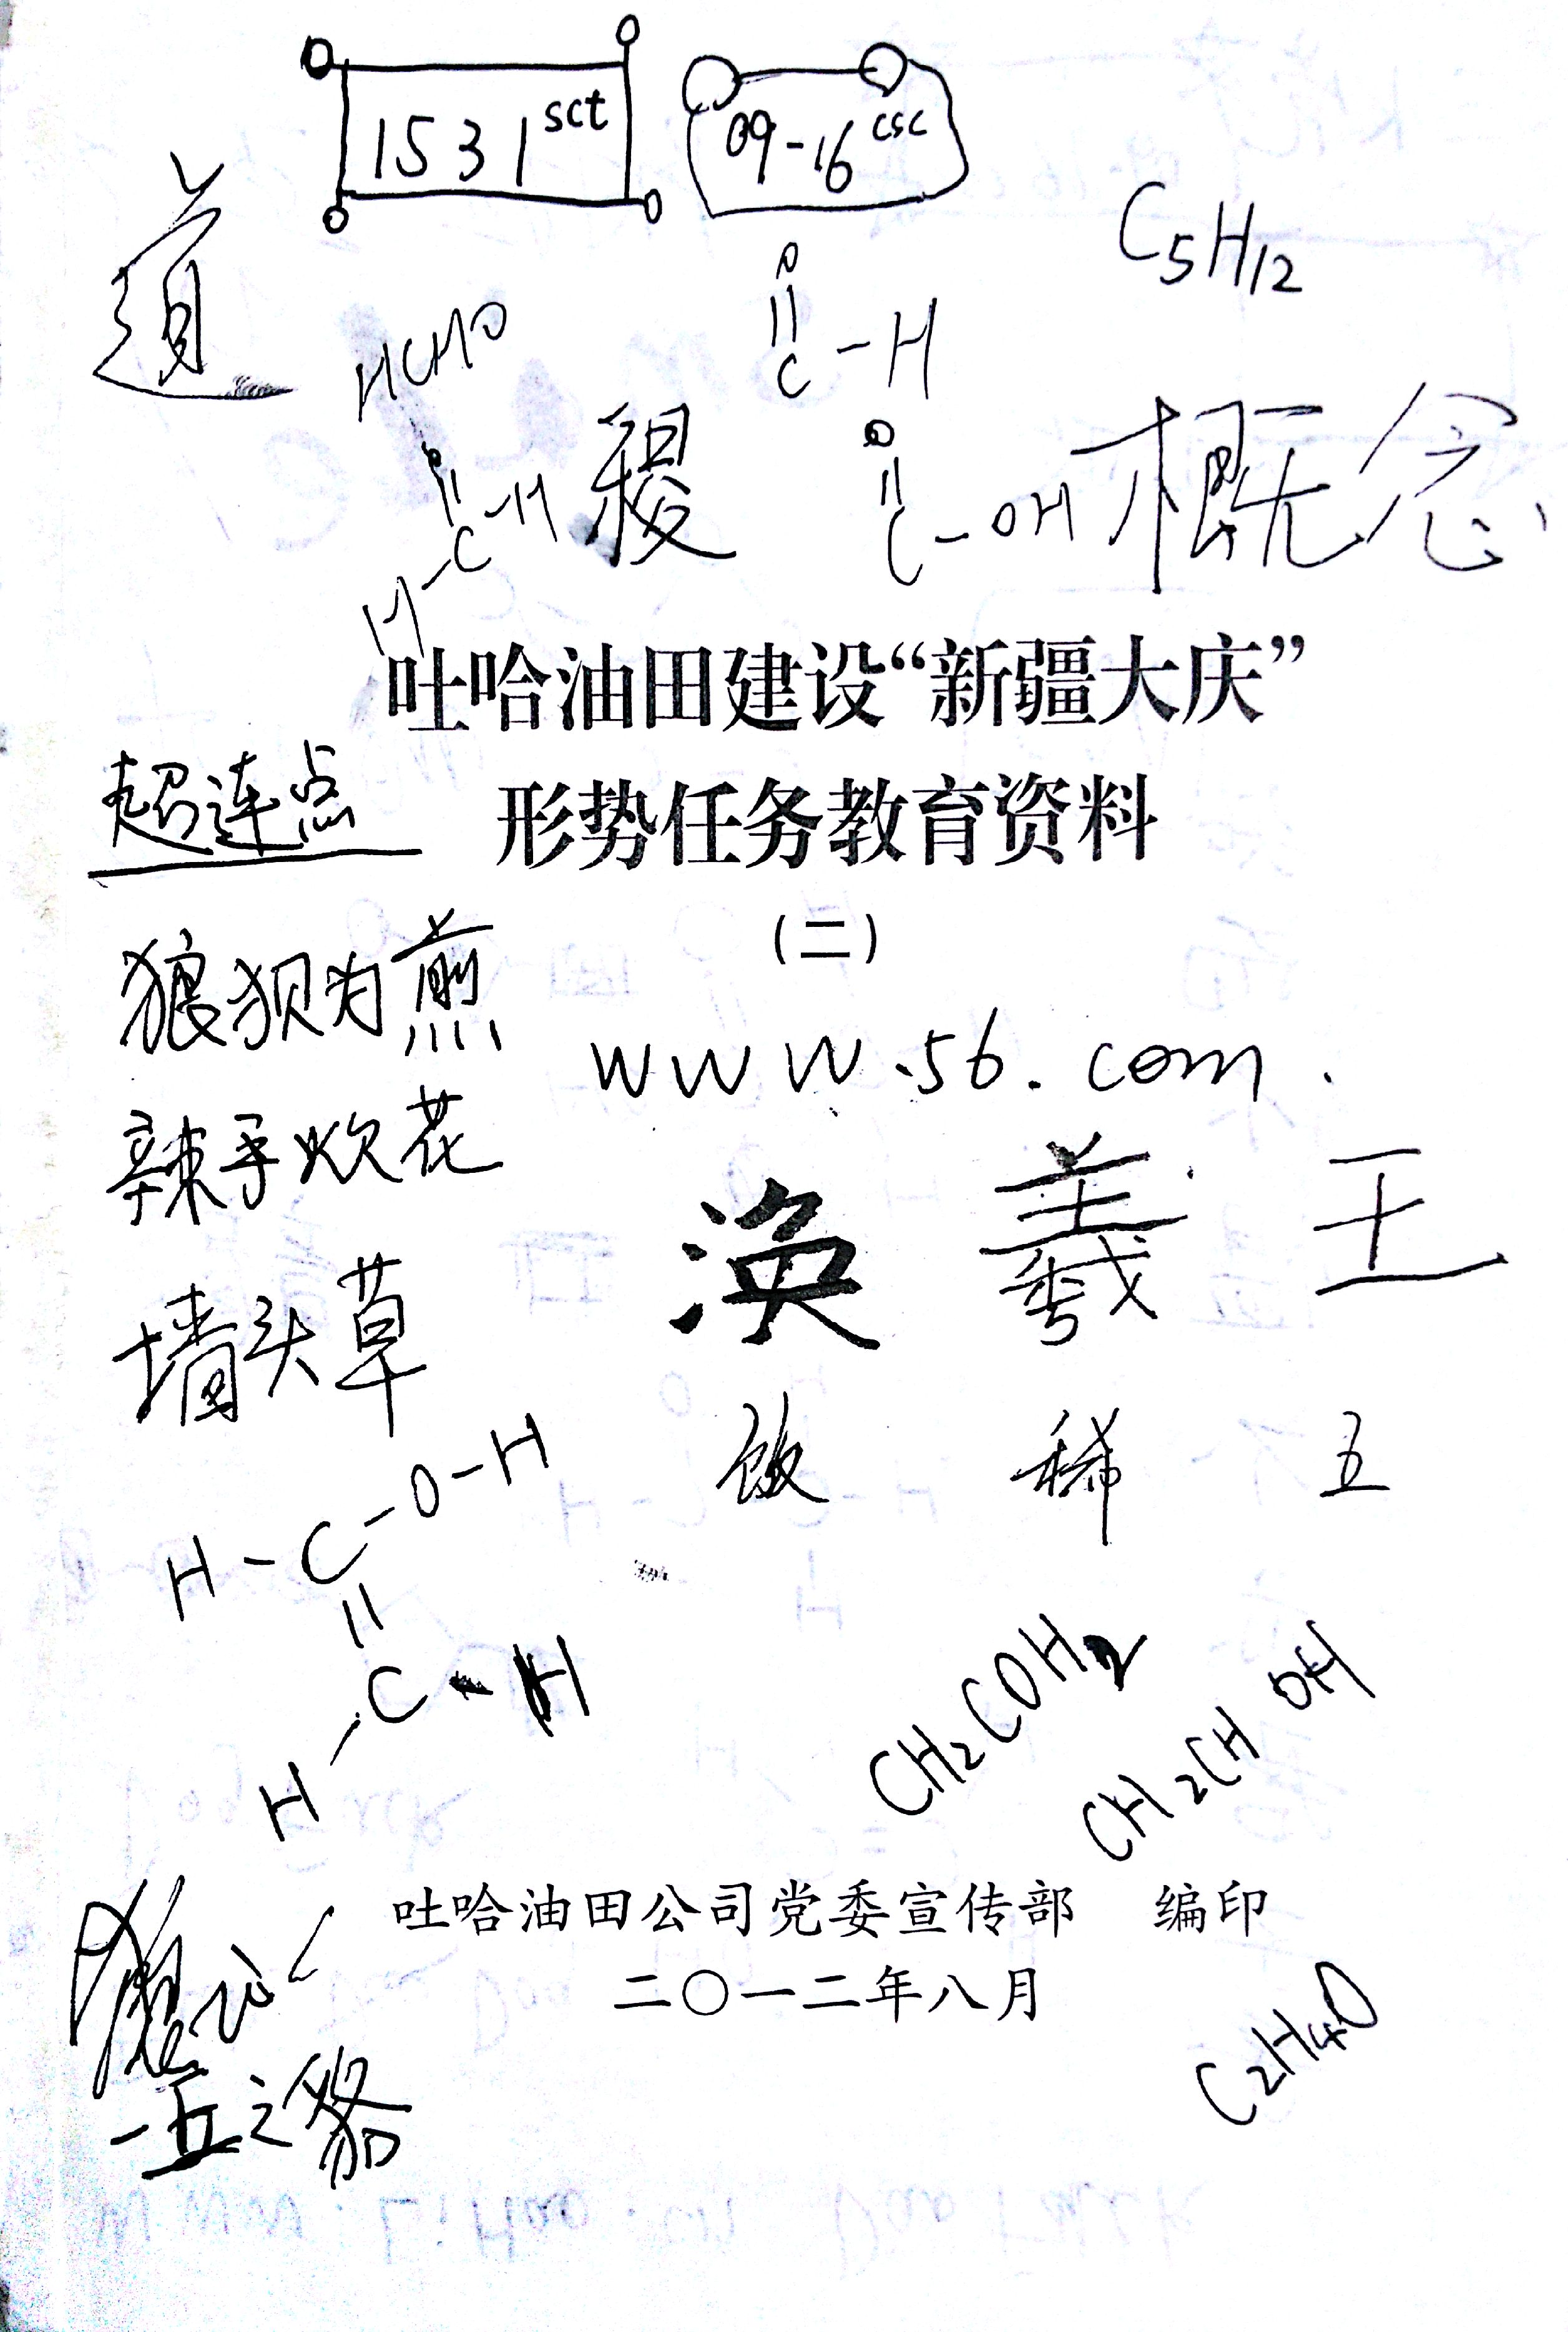 1531 sct
09-16 csc
道
C5H12
HCHO
O
C-H
O
H-C-H
稷
O
C-OH
概念
吐哈油田建设“新疆大庆”
形势任务教育资料
(二)
超连点
狼狈为煎
辣手炊花
墙头草
www.56.com.
涣 羲 王
饭 稀 五
H-C-O-H
H-C-H
CH2COH2
CH2CHOH
吐哈油田公司党委宣传部 编印
二〇一二年八月
C2H4O